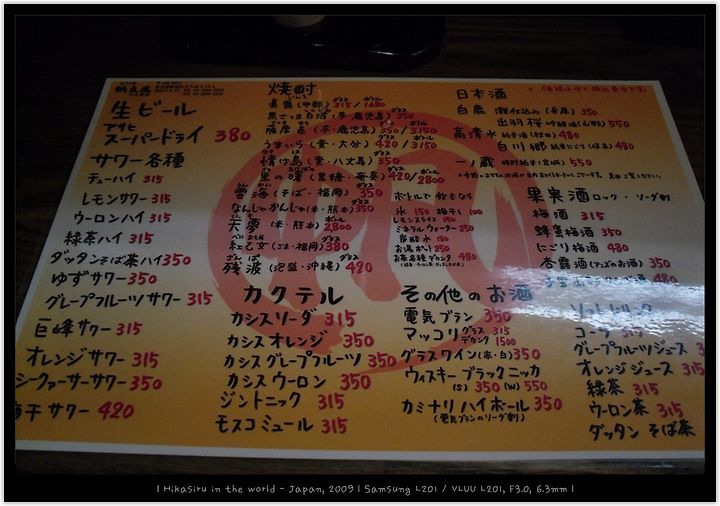 生ビール
アサヒ
スーパードライ 380
サワー各種
チューハイ 315
レモンサワー 315
ウーロンハイ 315
緑茶ハイ 315
ダッタンそば茶ハイ 350
ゆずサワー 350
グレープフルーツサワー 315
巨峰サワー 315
オレンジサワー 315
シークァーサーサワー 350
梅干サワー 420
焼酎
グラス ボトル
315/1,680
黒さつま白波(芋・鹿児島) 350
薩摩富(芋・鹿児島) 350/3150
うまいら(麦・大分) 420/3150
情け島(麦・八丈島) 350
里の曙(黒糖・奄美) 420/2800
雲海(そば・福岡) 350
なんじゃかんじゃ(米・熊本) 350
(米・熊本) 2,800
紅乙女(ごま・福岡) 380
残波(泡盛・沖縄) 420
ボトルで飲むなら
氷 150 梅干 100
レモンスライス 150
ミネラルウォーター 250
炭酸水 150
お湯ポット 250
お茶各種デカンタ 480
カクテル
カシスソーダ 315
カシスオレンジ 350
カシスグレープフルーツ 350
カシスウーロン 350
ジントニック 315
モスコミュール 315
その他のお酒
電気ブラン 350
マッコリ グラス 315
デカンタ 1500
グラスワイン(赤・白) 350
ウィスキー ブラックニッカ
(S) 350 (W) 550
カミナリハイボール 350
(電気ブランのソーダ割)
日本酒
白鹿 灘仕込み(兵庫) 350
出羽桜 吟醸酒(山形) 550
高清水 純米酒(秋田) 480
白川郷 純米にごり(岐阜) 480
一ノ蔵 特別純米(宮城) 550
果実酒 ロック・ソーダ割
梅酒 315
蜂蜜梅酒 350
にごり梅酒 480
杏露酒(アンズのお酒) 350
480
ソフトドリンク
コーラ 315
グレープフルーツジュース
オレンジジュース 315
緑茶 315
ウーロン茶 315
ダッタンそば茶
| Hikasiru in the world - Japan, 2009 | Samsung L201 / VLUU L201, F3.0, 6.3mm |